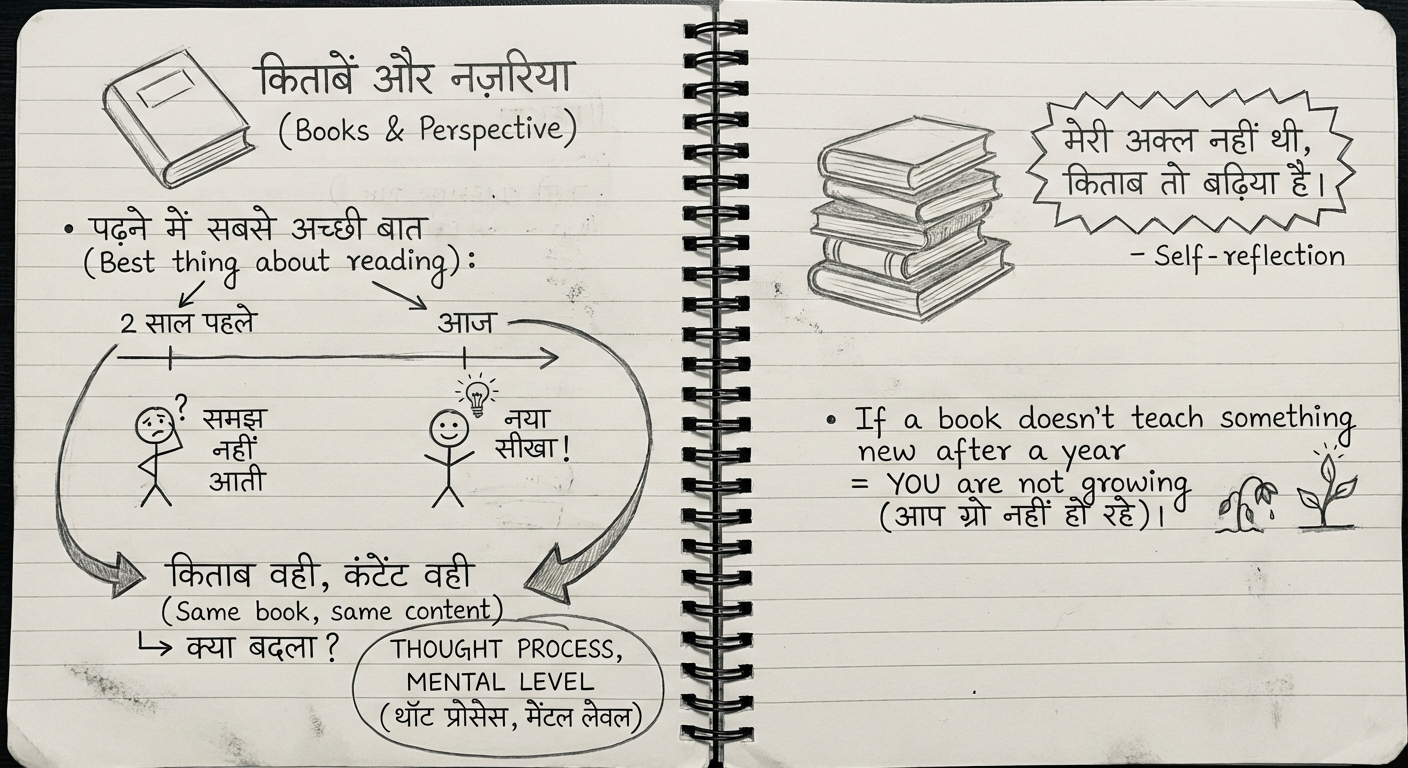 किताबें और नज़रिया
(Books & Perspective)
• पढ़ने में सबसे अच्छी बात
(Best thing about reading):
2 साल पहले
आज
?
समझ
नहीं
आती
नया
सीखा!
किताब वही, कंटेंट वही
(Same book, same content)
↳ क्या बदला?
THOUGHT PROCESS,
MENTAL LEVEL
(थॉट प्रोसेस, मेंटल लेवल)
मेरी अक्ल नहीं थी,
किताब तो बढ़िया है।
- Self-reflection
• If a book doesn't teach something
new after a year
= YOU are not growing
(आप ग्रो नहीं हो रहे)।